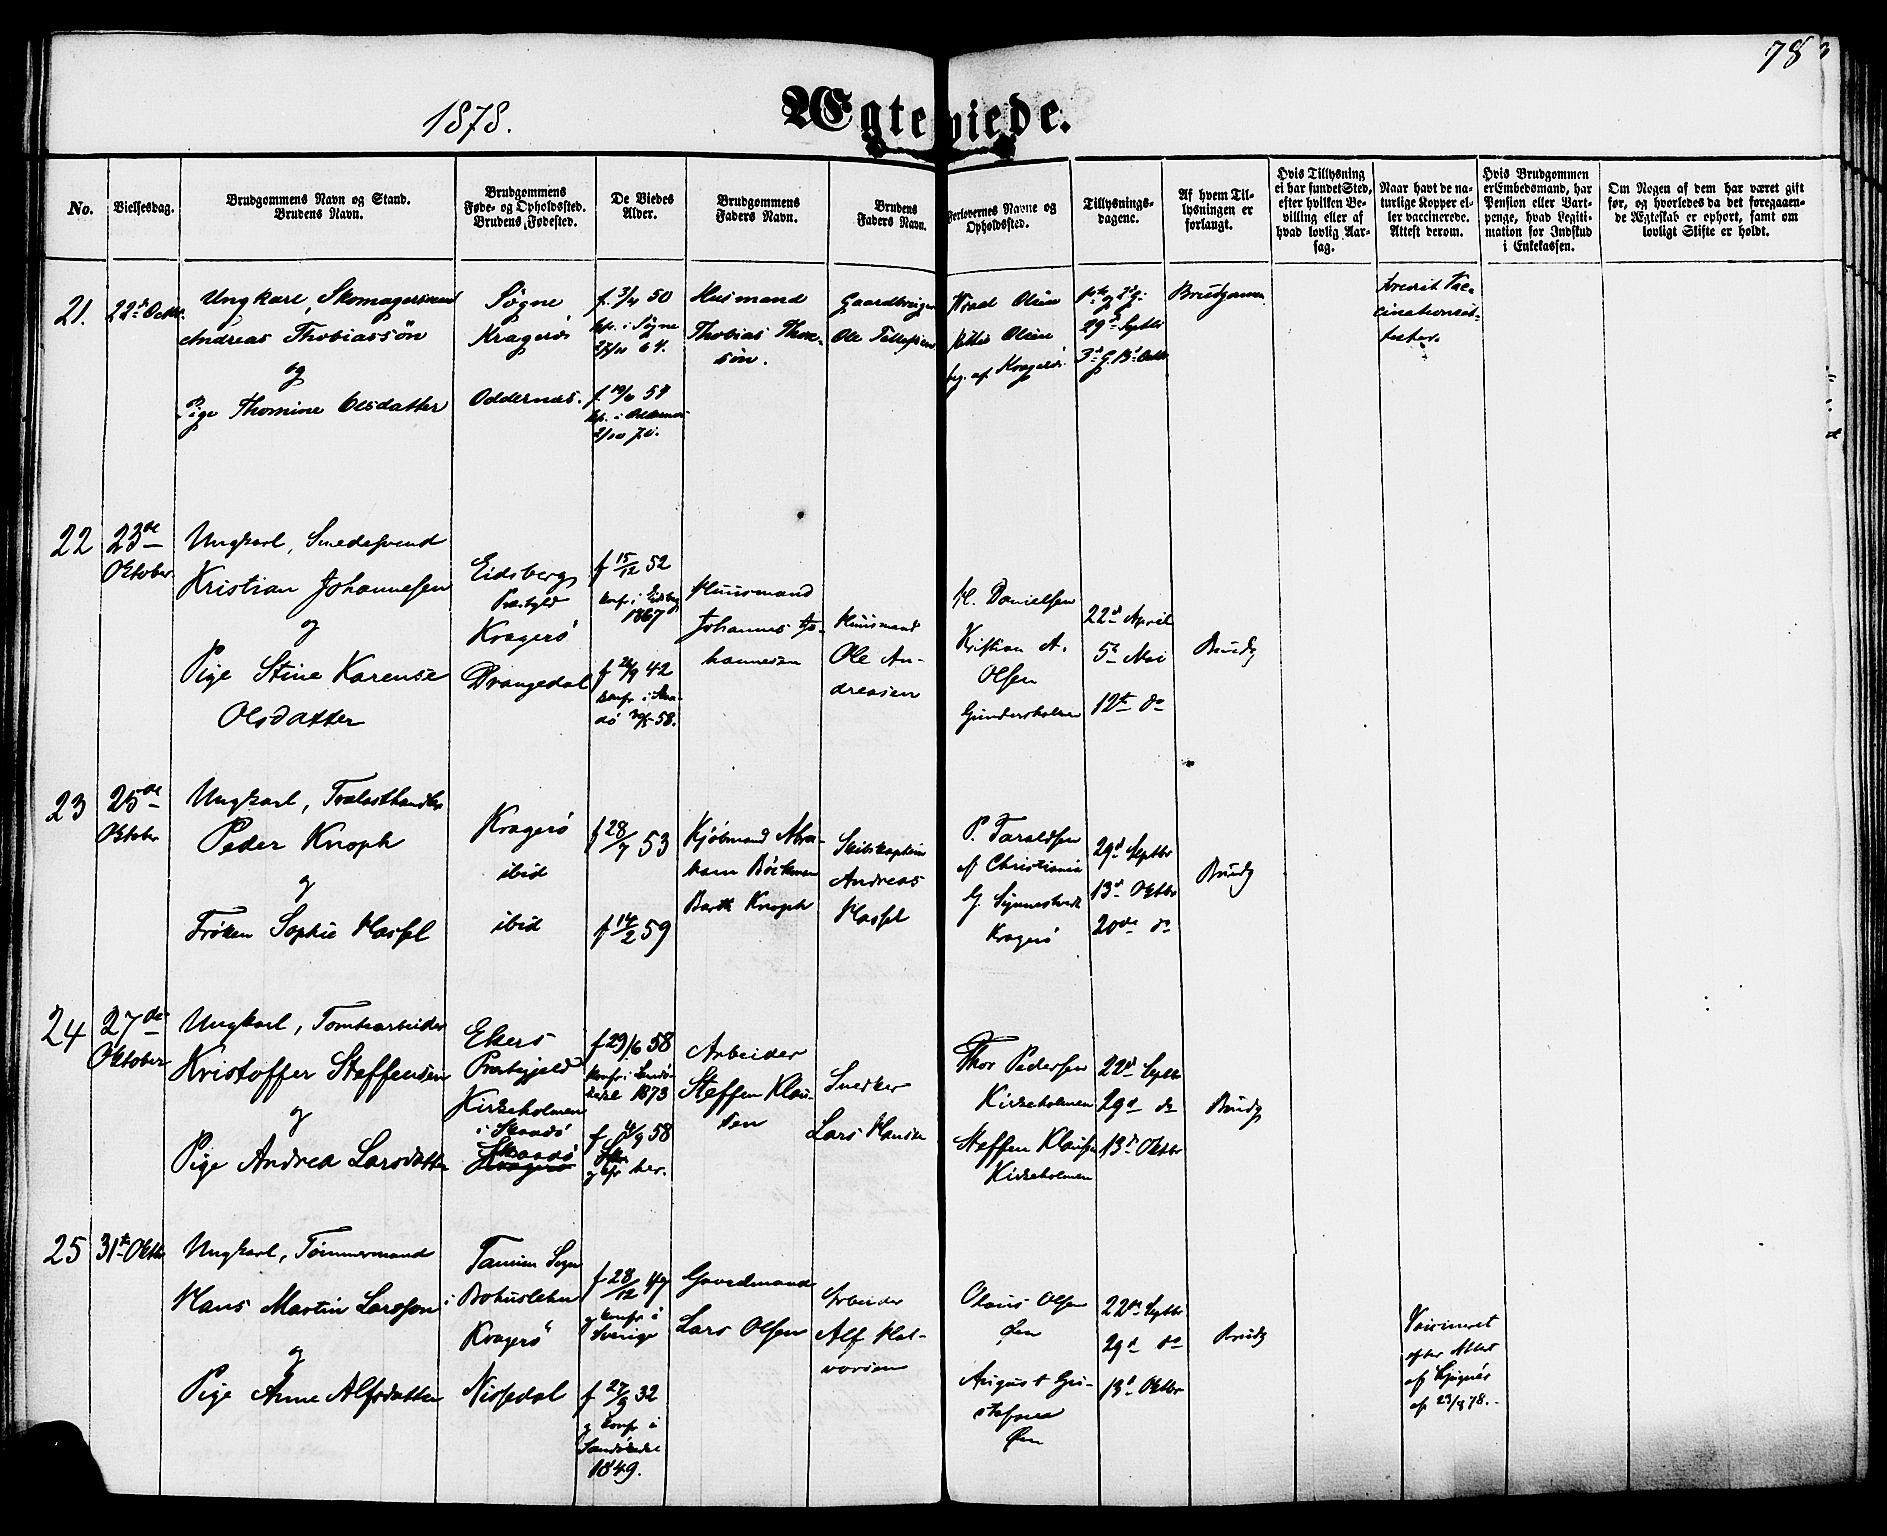 78
1878.
Ægteviede.
No.
Vielsesdag.
Brudgommens Navn og Stand.
Brudens Navn.
Brudgommens
Føde- og Opholdssted.
Brudens Fødested.
De Viedes
Alder.
Brudgommens
Faders Navn.
Brudens
Faders Navn.
Forlovernes Navne og
Opholdssted.
Tillysnings-
dagene.
Af hvem Til-
lysningen er
forlangt.
Hvis Tillysning
ei har fundet Sted,
efter hvilken Be-
villing eller af
hvad lovlig Aar-
sag.
Naar havt de na-
turlige Kopper el-
ler vaccinerede.
Attest derom.
Hvis Brudgommen
er Embedsmand, har
Pension eller Vart-
penge, hvad Legiti-
mation for Indskud
i Enkekassen.
Om Nogen af dem har været gift
før, og hvorledes da det foregaaen-
de Ægteskab er ophørt, samt om
lovligt Skifte er holdt.
21.
22d Octbr.
Ungkarl, Skomagersvend
Andreas Thobiassøn
og
Pige Thomine Olsdatter
Søgne
Kragerö
Oddernæs.
f. 3/4 50
i Søgne
64.
f. 19/6 54
2/10 70.
Husmand
Thobias Thore-
søn.
Gaardbruger
Ole Tellefsen
Olsen
Olsen
beg. af Kragerö.
29d Septbr
3d G. 13d Octbr
Brudgommen
22
23de
Oktober
Ungkarl, Smedesvend
Kristian Johannesen
og
Pige Stine Karense
Olsdatter
Eidsberg
Præstgjld
Kragerö
Drangedal
f 15/12 52
konfr. i Eidsberg
1867
f 24/9 42
konfr i Skaa-
dö 58.
Huusmand
Johannes Jo-
hannesen
Huusmand
Ole An-
dreasen
H. Danielsen
Kristian A.
Olsen
Gundersholmen
22d April
5te Mai
12te do
Brudg
23
25de
Oktober
Ungkarl, Trælasthandler
Peder Knoph
og
Frøken Sophie Hassel
Kragerö
ibid
ibid
f 28/7 53
f 14/2 59
Kjøbmand Abra-
ham Böckman
Barth Knoph
Skibskaptein
Andreas
Hassel
P. Taraldsen
af Christiania
G. Synnestvedt
Kragerö
29d Septbr
13d Oktbr
20de do
Brudg
24
27de
Oktober
Ungkarl, Tomtearbeider
Kristoffer Steffensen
og
Pige Andrea Larsdatter
Ekers
Præstegjeld
Kirkeholmen
i Skaadö
Skaadö
Kragerö
f 29/6 58
konfr. i Sandö-
kedal 1873
f 4/9 58
her.
Arbeider
Steffen Klau-
sen
Snedker
Lars Hansen
Thor Pedersen
Kirkeholmen
Steffen Klausen
Kirkeholmen
22d Septbr
29d do
13d Oktbr
Brudg
25
31te Oktbr
Ungkarl, Tømmermand
Hans Martin Larsson
og
Pige Anne Alfsdatter
Tanum Sogn
i Bohuslehn
Kragerö
Nissedal
f 28/12 49
g konfr i
Sverige
f 27/9 32
g konfr i
Sandökedal
1849.
Gaardmand
Lars Olsen
Arbeider
Alf Hal-
vorsen
Olaus Olsen
Öen
August Gu-
stafson
Öen
22de Septbr
29d do
13d Oktbr
Brudg
Vaccineret
efter Attest
af
af 23/8 78.